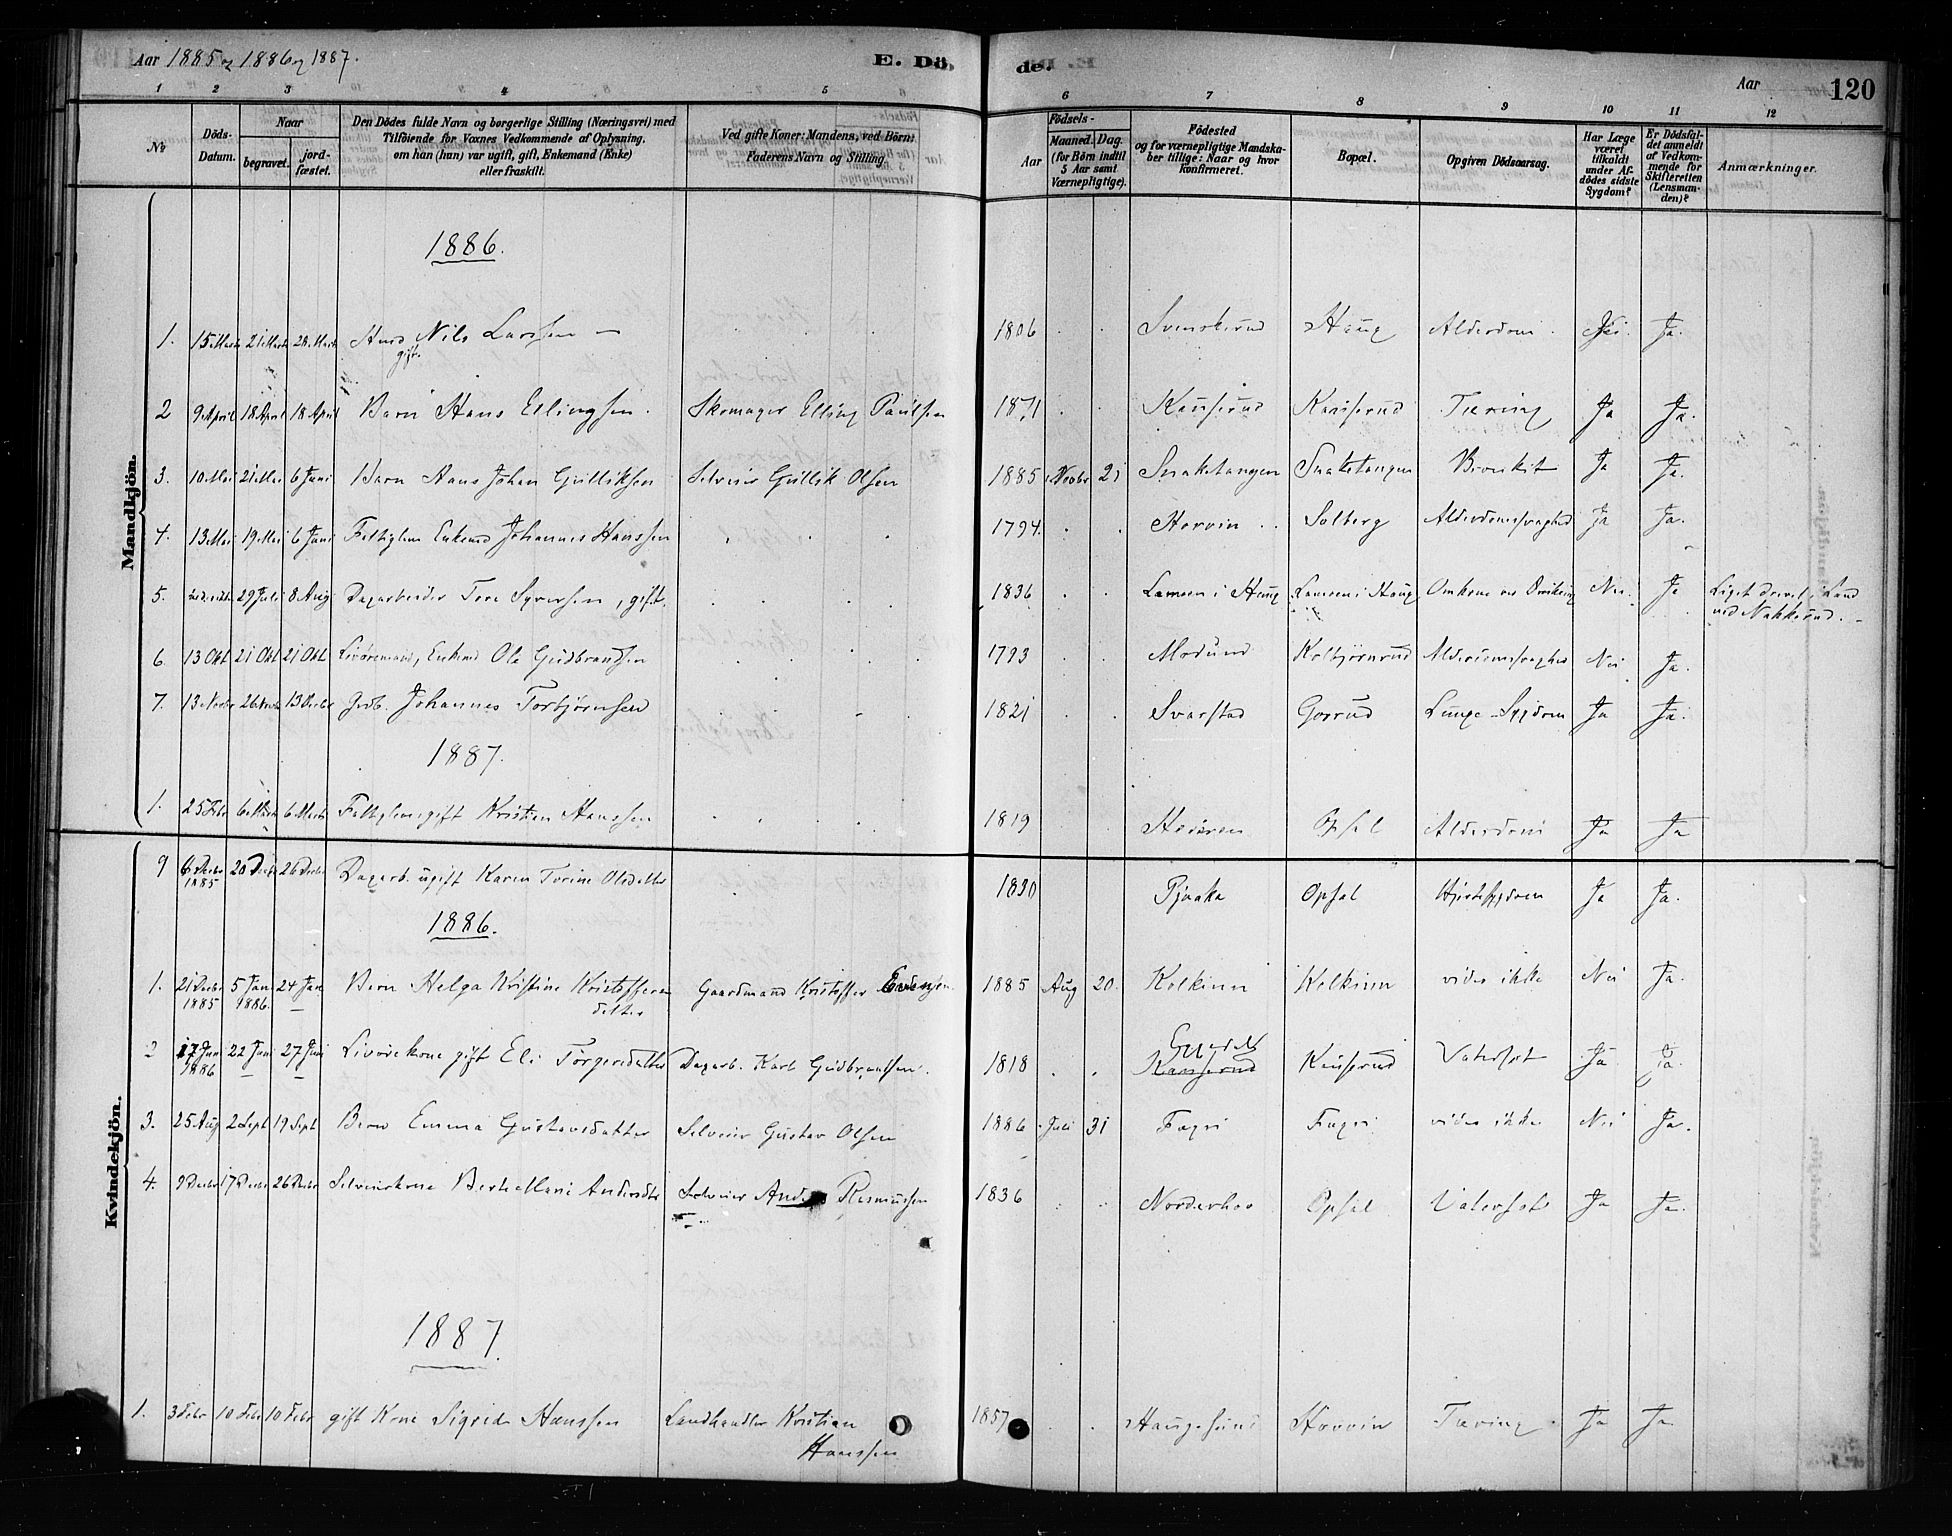 Aar 1885 og 1886 og 1887.
E. Dö
de.
Aar
120
1 2 3 4 5 6 6 7 8 9 10 11 12
№
Döds-Datum.
Naar
begravet.
jord-fæstet.
Den Dödes fulde Navn og borgerlige Stilling (Næringsvei) med
Tilföiende for Voxnes Vedkommende af Oplysning,
om han (hun) var ugift, gift, Enkemand (Enke)
eller fraskilt.
Ved gifte Koner: Mandens, ved Börn:
Faderens Navn og Stilling.
Födsels-
Aar
Maaned. Dag.
(for Börn indtil
5 Aar samt
Værnepligtige).
Födested
og for værnepligtige Mandska-
ber tillige: Naar og hvor
konfirmeret.
Bopæl.
Opgiven Dödsaarsag.
Har Læge
været
tilkaldt
under Af-
dödes sidste
Sygdom?
Er Dödsfal-
det anmeldt
af Vedkom-
mende for
Skifteretten
(Lensman-
den)?
Anmærkninger.
Mandkjön.
1886.
1. 15 Marts 21 Marts 28 Marts Nils Larssen — 1806 Svenskerud Haug Alderdom. Nei Ja.
gift.
2 9 April 18 April 18 April Barn Hans Ellingsen. Skomager Elling Paulsen 1871 Kauserud Kauserud Tæring Ja Ja.
3. 10 Mai 21 Mai 6 Juni Barn Hans Johan Gulliksen Selveier Gullik Olsen 1885 Novbr 21 Snaketangen Snaketangen Bronkit Ja Ja.
4. 13 Mai 19 Mai 6 Juni Johannes Hanssen 1794. Horvin Solberg Alderdomssvaghed Ja Ja.
5. 29 Juli 8 Aug Dagarbeider Tore Syversen, gift. 1836 i Haug i Haug Omkom ved Nei. Ja Liget drevet i Land
ved Nakkerud.
6. 13 Okt 21 Okt 21 Okt Enkemd Ole Gudbrandsen 1793 Modum Kolbjörnrud Alderdomssvaghed Nei Ja.
7. 13 Novbr 26 Novbr 13 Decbr Grdb. Johannes Torbjörnsen 1821 Svarstad Gorrud Lunge-Sygdom Ja Ja.
1887.
1. 25 Febr 6 Marts 6 Marts gift Kristian Hanssen 1819 Opsal Alderdom Ja Ja
Kvindekjön.
9 6 Decbr 1885 20 Decbr 26 Decbr Dagarb. ugift Karen Torine Olsdatter 1830 Pjaaka Opsal Hjertesygdom Ja Ja.
1886.
1. 21 Decbr 1885 5 Jan 1886. 24 Jan Barn Helga Kristine Kristoffersdatter Gaardmand Kristoffer Evensen 1885 Aug 20. Kolkinn Kolkinn vides ikke Nei Ja.
2 17 Juni 1886 22 Juni 27 Juni gift Eli Torgersdatter Dagarb. Karl Gudbrandsen. 1818 Kauserud Kauserud Vatersot Ja Ja.
3. 25 Aug 2 Sept 19 Sept Barn Emma Gustavsdatter Selveier Gustav Olsen 1886 Juli 31 Fagri Fagri vides ikke Nei Ja.
4. 9 Decbr 17 Decbr 26 Decbr Selveierkone Berthe Marie Andersdtr Selveier Anders Rasmussen 1836 Norderhov Opsal Vatersot Ja Ja.
1887
1. 3 Febr 10 Febr 10 Febr gift Kone Sigrid Hanssen Landhandler Kristian 1857 Haugesund Horvin Tæring Ja Ja.
Hanssen